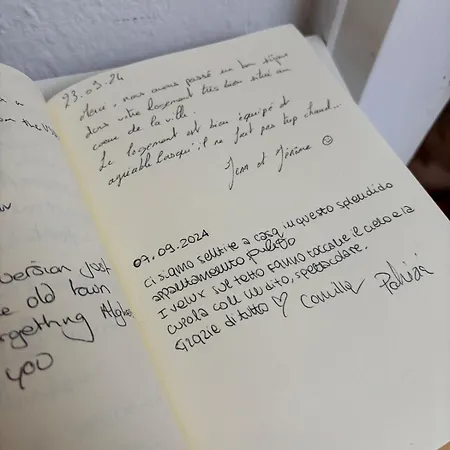 version just
e old town
rgetthing
you
23.09.24
Merci, nous avons passé un bon séjour
dans votre logement très bien situé au
coeur de la ville.
Le logement est bien équipé et
agréable lorsqu'il ne fait pas trop chaud...
et Jérôme ☺
07.09.2024
ci siamo sentite a casa in questo splendido
appartamento
I velux sul tetto fanno toccare il cielo e la
cupola con un dito, spettacolare.
Grazie di tutto ♡ Camilla